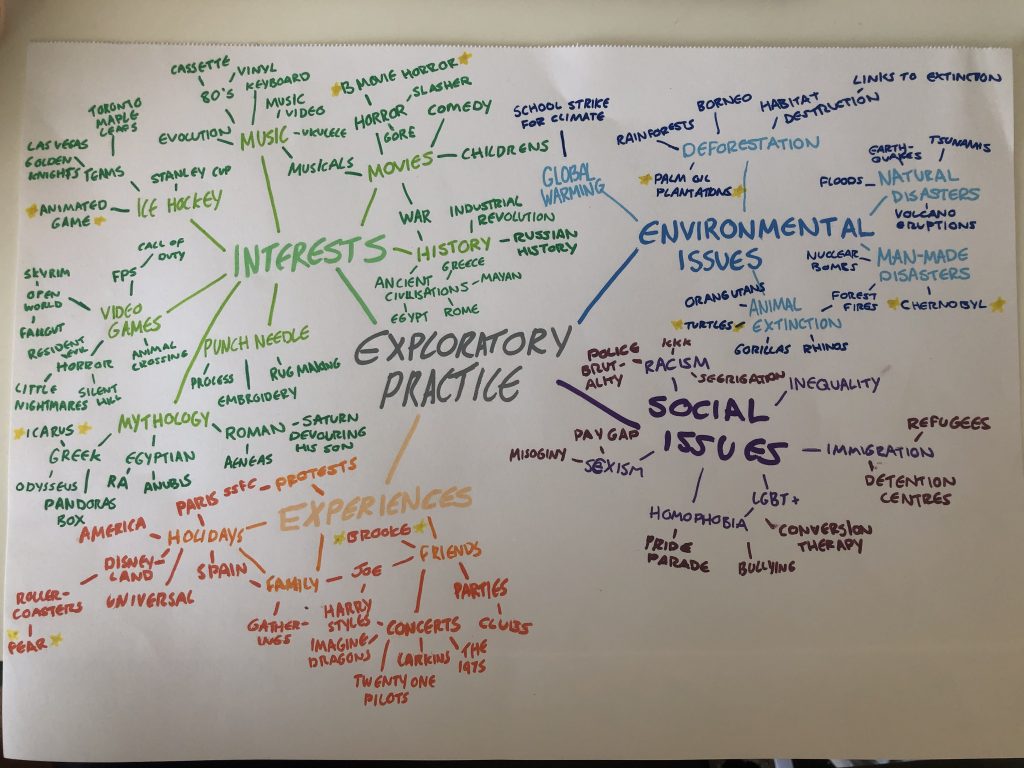 EXPLORATORY
PRACTICE
INTERESTS
MUSIC
CASSETTE
VINYL
80'S
KEYBOARD
MUSIC
VIDEO
UKULELE
EVOLUTION
MUSICALS
MOVIES
B MOVIE HORROR
SLASHER
HORROR
GORE
COMEDY
CHILDRENS
WAR
HISTORY
INDUSTRIAL
REVOLUTION
RUSSIAN
HISTORY
ANCIENT
CIVILISATIONS
GREECE
MAYAN
EGYPT
ROME
ICE HOCKEY
STANLEY CUP
TEAMS
TORONTO
MAPLE
LEAFS
LAS VEGAS
GOLDEN
KNIGHTS
ANIMATED
GAME
VIDEO
GAMES
CALL OF
DUTY
FPS
SKYRIM
OPEN
WORLD
FALLOUT
RESIDENT
EVIL
HORROR
LITTLE
NIGHTMARES
SILENT
HILL
ANIMAL
CROSSING
PUNCH NEEDLE
PROCESS
EMBROIDERY
RUG MAKING
MYTHOLOGY
ICARUS
GREEK
ODYSSEUS
PANDORAS
BOX
EGYPTIAN
RA
ANUBIS
ROMAN
AENEAS
SATURN
DEVOURING
HIS SON
ENVIRONMENTAL
ISSUES
GLOBAL
WARMING
SCHOOL STRIKE
FOR CLIMATE
DEFORESTATION
RAINFORESTS
BORNEO
HABITAT
DESTRUCTION
LINKS TO EXTINCTION
PALM OIL
PLANTATIONS
NATURAL
DISASTERS
EARTH-
QUAKES
TSUNAMIS
FLOODS
VOLCANO
ERUPTIONS
MAN-MADE
DISASTERS
NUCLEAR
BOMBS
FOREST
FIRES
CHERNOBYL
ANIMAL
EXTINCTION
ORANGUTANS
TURTLES
GORILLAS
RHINOS
SOCIAL
ISSUES
RACISM
KKK
POLICE
BRUT-
ALITY
SEGRIGATION
INEQUALITY
IMMIGRATION
REFUGEES
DETENTION
CENTRES
SEXISM
PAY GAP
MISOGINY
LGBT+
HOMOPHOBIA
PRIDE
PARADE
BULLYING
CONVERSION
THERAPY
EXPERIENCES
PROTESTS
SSFC
HOLIDAYS
PARIS
AMERICA
DISNEY-
LAND
UNIVERSAL
SPAIN
ROLLER-
COASTERS
FAMILY
GATHER-
INGS
JOE
BROOKE
FRIENDS
PARTIES
CLUBS
CONCERTS
HARRY
STYLES
IMAGINE
DRAGONS
TWENTY ONE
PILOTS
LARKINS
THE
1975